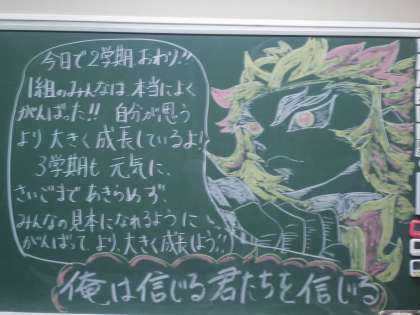 今日で2学期おわり!!
1組のみんなは、本当によく
がんばった!! 自分が思う
より大きく成長しているよ!
3学期も元気に、
さいごまであきらめず、
みんなの見本になれるように
がんばって より、大きく成長しよう!!
俺は信じる君たちを信じる